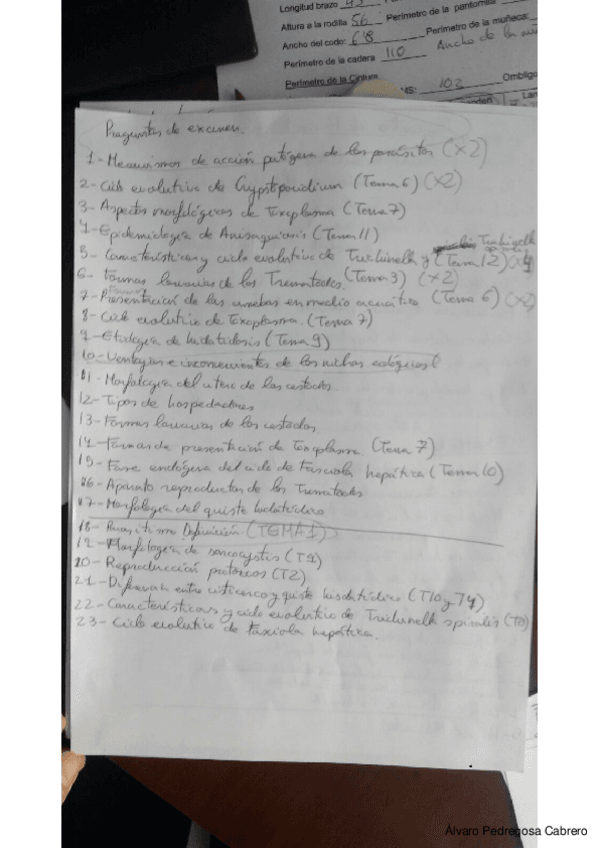 Longitud brazo 43
Perímetro de la pantorrilla
Altura a la rodilla 56
Perímetro de la muñeca:
Ancho del codo: 6'8
Ancho de la mu
Perímetro de la cadera 110
Perímetro de la Cintura
MS: 102 Ombligo
Preguntas de examen.
1-Mecanismos de acción patógena de los parásitos (x2)
2-Ciclo evolutivo de Cryptosporidium (Tema 6) (x2)
3-Aspectos morfológicos de Toxoplasma (Tema 7)
4-Epidemiología de Anisaquiosis (Tema 11)
5-Características y ciclo evolutivo de Trichinella (Tema 12)
6-Formas larvarias de los Trematodos. (Tema 3) (x2)
7-Presentación de las amebas en medio acuático (Tema 6) (x2)
8-Ciclo evolutivo de Toxoplasma. (Tema 7)
9-Etiología de hidatidosis (Tema 9)
10-Ventajas e inconvenientes de los nichos ecológicos (
11-Morfología del útero de los cestodos.
12-Tipos de hospedadores
13-Formas larvarias de los cestodos
14-Formas de presentación de Toxoplasma. (Tema 7)
15-Fase endógena del ciclo de Fasciola hepática (Tema 10)
16-Aparato reproductor de los Trematodos
17-Morfología del quiste hidatídico
18-Parasitismo Definición (TEMA 1)
19-Morfología de sarcocystis (T9)
20-Reproducción protozoos (T2)
21-Diferencia entre cisticerco y quiste hidatídico (T10 y T4)
22-Características y ciclo evolutivo de Trichinella spiralis
23-Ciclo evolutivo de fasciola hepática.
Álvaro Pedregosa Cabrero